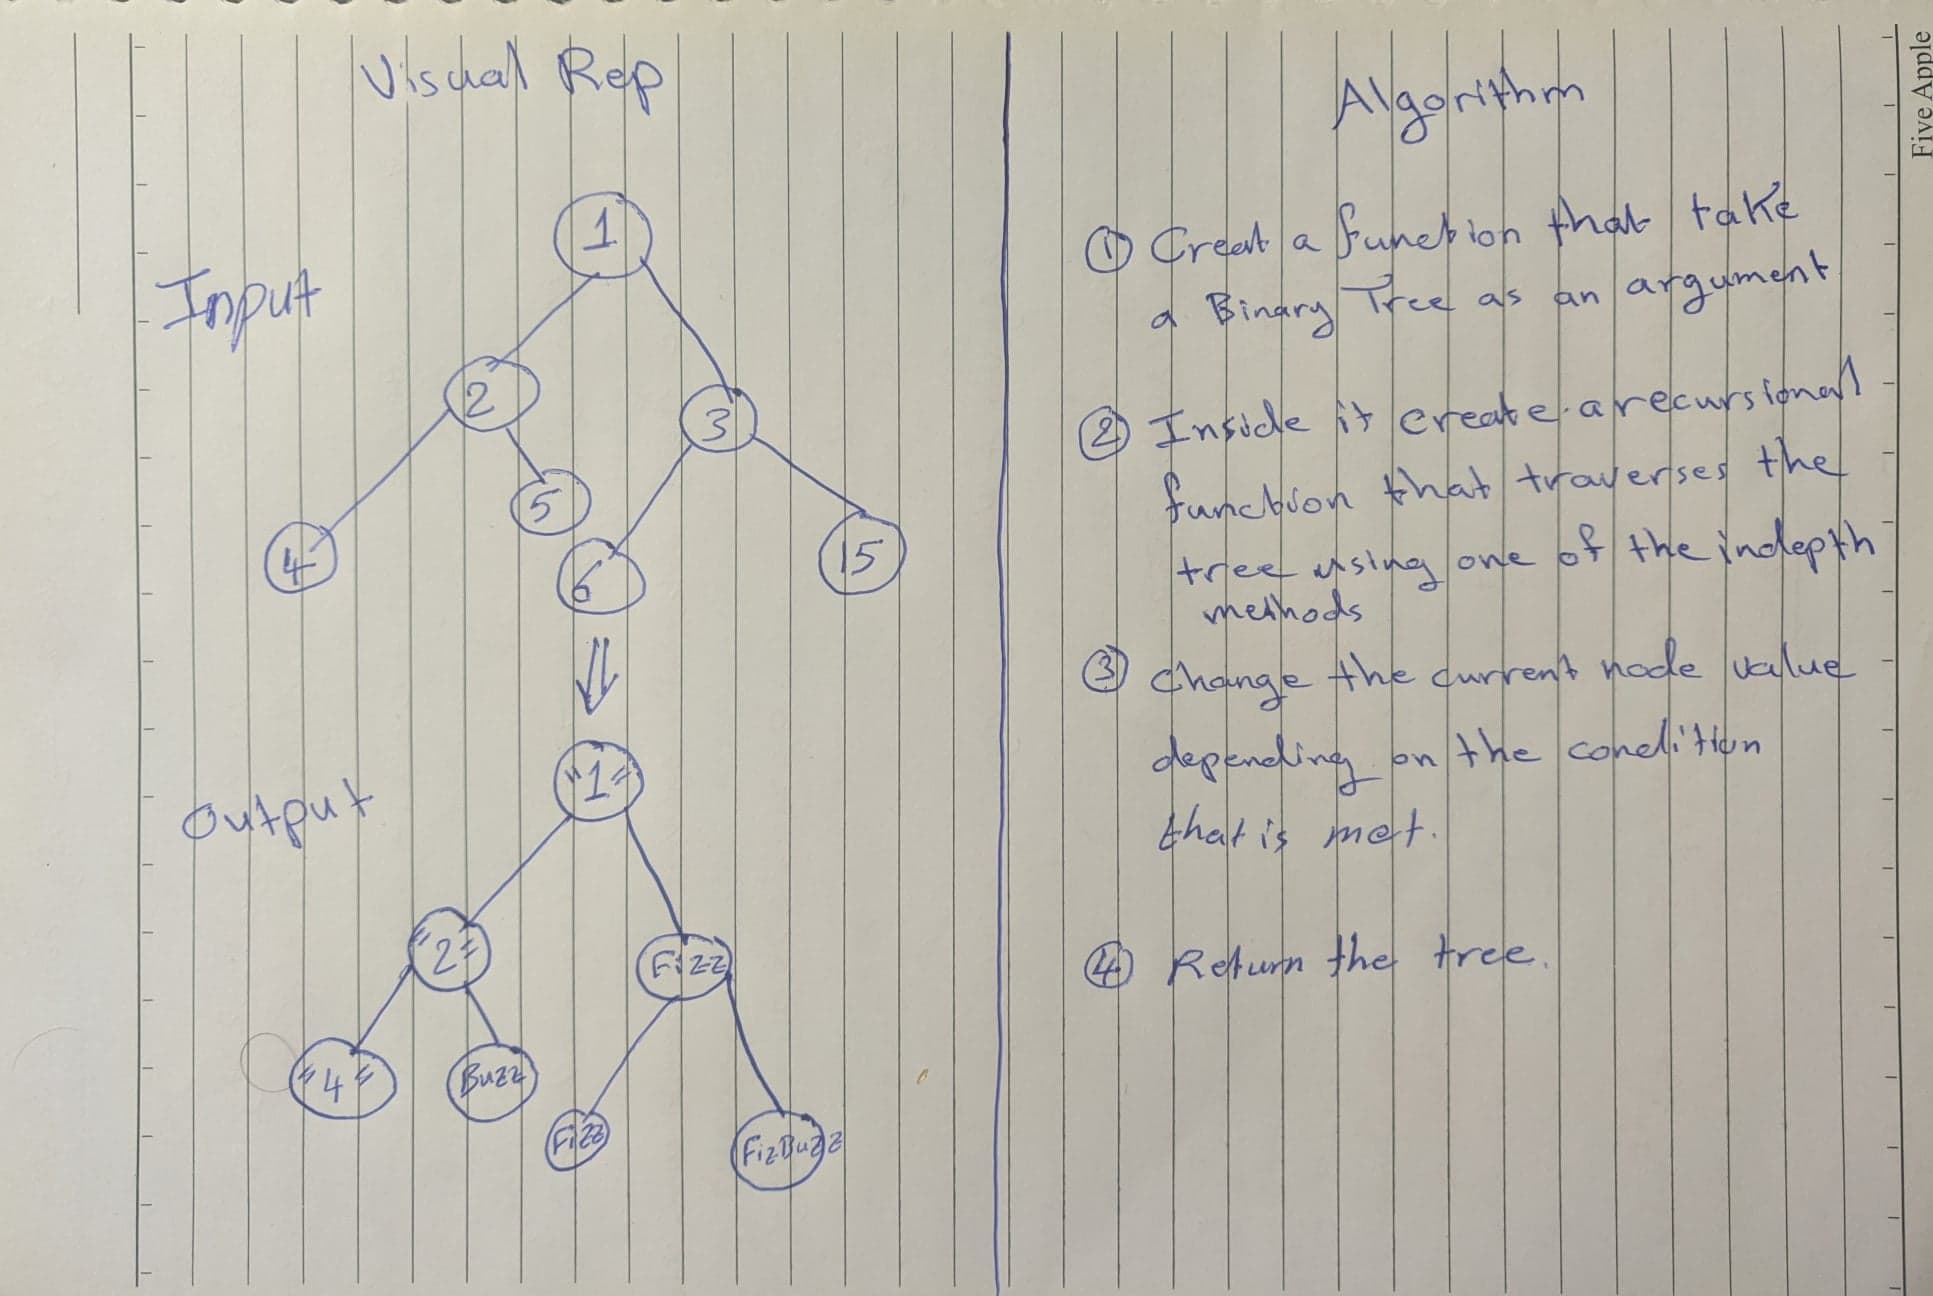 Visual Rep
Input
1
2
3
4
5
6
15
Output
"1"
"2"
Fizz
"4"
Buzz
Fizz
FizBuzz
Algorithm
① Creat a function that take
a Binary Tree as an argument
② Inside it create a recursional
function that traverses the
tree using one of the indepth
methods
③ Change the current node value
depending on the condition
that is met.
④ Return the tree.
Five Apple